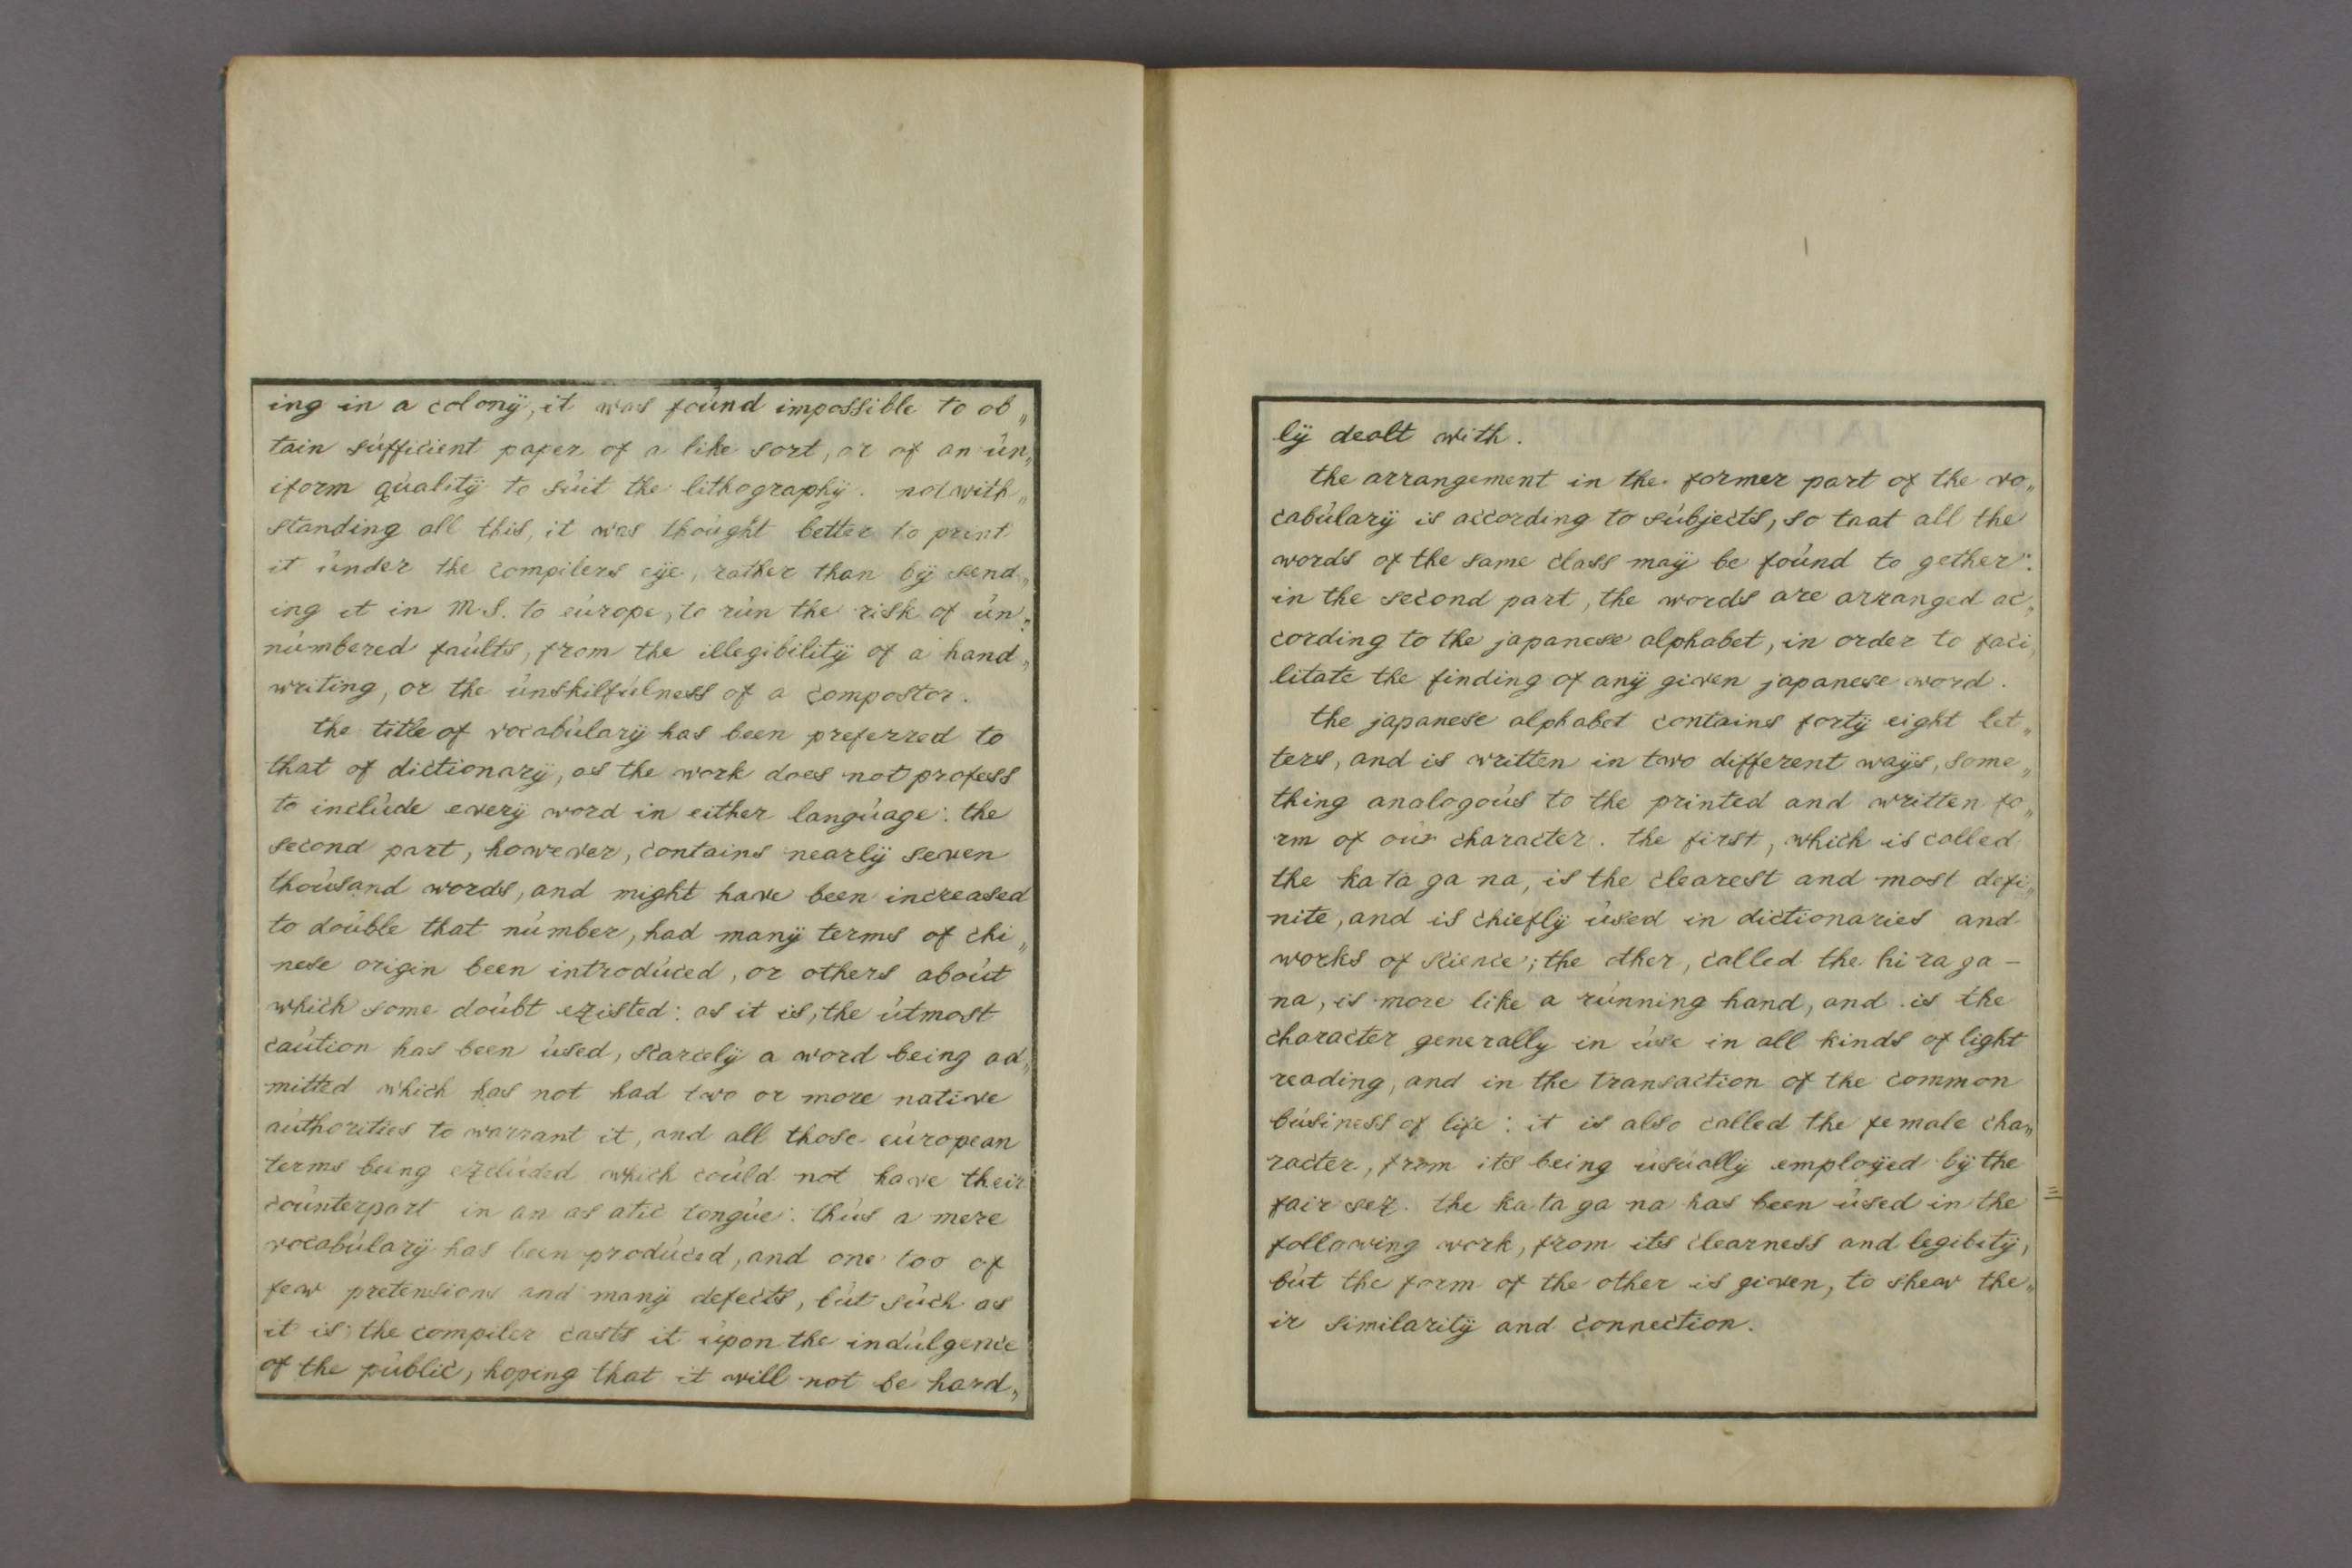 ing in a colonÿ, it was found impossible to ob„
tain sufficient paper of a like sort, or of an un„
iform qualitÿ to suit the lithographÿ. notwith„
standing all this, it was thought better to print
it under the compilers eÿe, rather than bÿ send„
ing it in M S. to europe, to run the risk of un„
numbered faults, from the illegibilitÿ of a hand„
writing, or the unskilfulness of a compostor.
the title of vocabularÿ has been preferred to
that of dictionarÿ, as the work does not profess
to include everÿ word in either language: the
second part, however, contains nearlÿ seven
thousand words, and might have been increased
to double that number, had manÿ terms of chi„
nese origin been introduced, or others about
which some doubt existed: as it is, the utmost
caution has been used, scarcelÿ a word being ad„
mitted which has not had two or more native
authorities to warrant it, and all those european
terms being excluded which could not have their
counterpart in an as atic tongue: thus a mere
vocabularÿ has been produced, and one too of
few pretensions and manÿ defects, but such as
it is the compiler casts it upon the indulgence
of the public, hoping that it will not be hard„
lÿ dealt with.
the arrangement in the former part of the vo„
cabularÿ is according to subjects, so taat all the
words of the same class maÿ be found to gether:
in the second part, the words are arranged ac„
cording to the japanese alphabet, in order to faci„
litate the finding of anÿ given japanese word.
the japanese alphabet contains fortÿ eight let„
ters, and is written in two different waÿs, some„
thing analogous to the printed and written fo„
rm of our character. the first, which is called
the ka ta ga na, is the clearest and most defi„
nite, and is chieflÿ used in dictionaries and
works of science; the other, called the hi ra ga –
na, is more like a running hand, and is the
character generally in use in all kinds of light
reading, and in the transaction of the common
business of life: it is also called the fe male cha„
racter, from its being usuallÿ emploÿed bÿ the
fair sex. the ka ta ga na has been used in the
三
following work, from its clearness and legibitÿ,
but the form of the other is given, to shew the„
ir similaritÿ and connection.